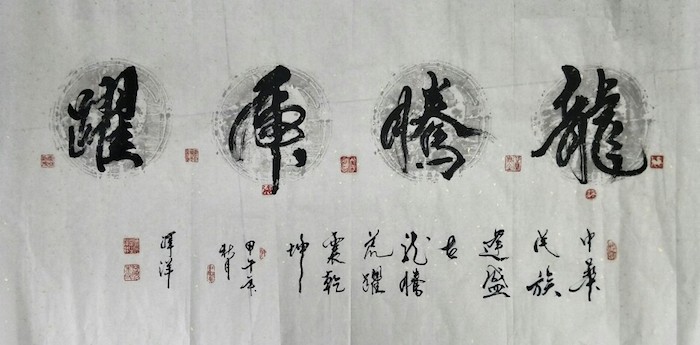 龍騰虎躍
中華
民族
逢盛
世
龍騰
虎躍
震乾
坤
甲午年
秋月